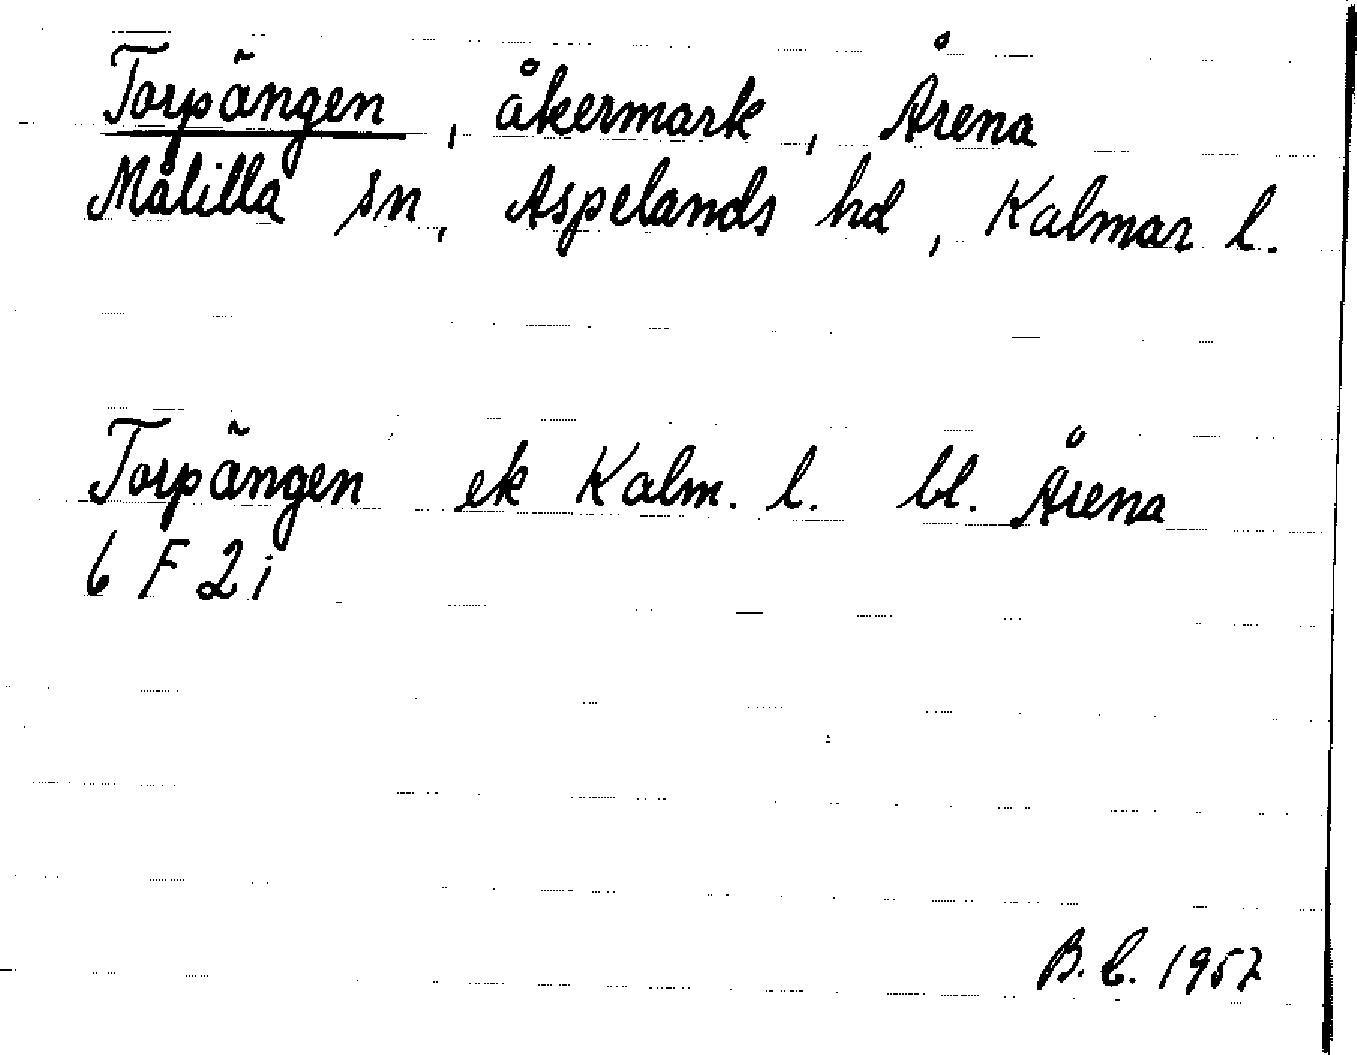 Torpängen, åkermark, Årena
Målilla sn, Aspelands hd, Kalmar l.
Torpängen ek Kalm. l. bl. Årena
6 F 2 i
B. E. 1957